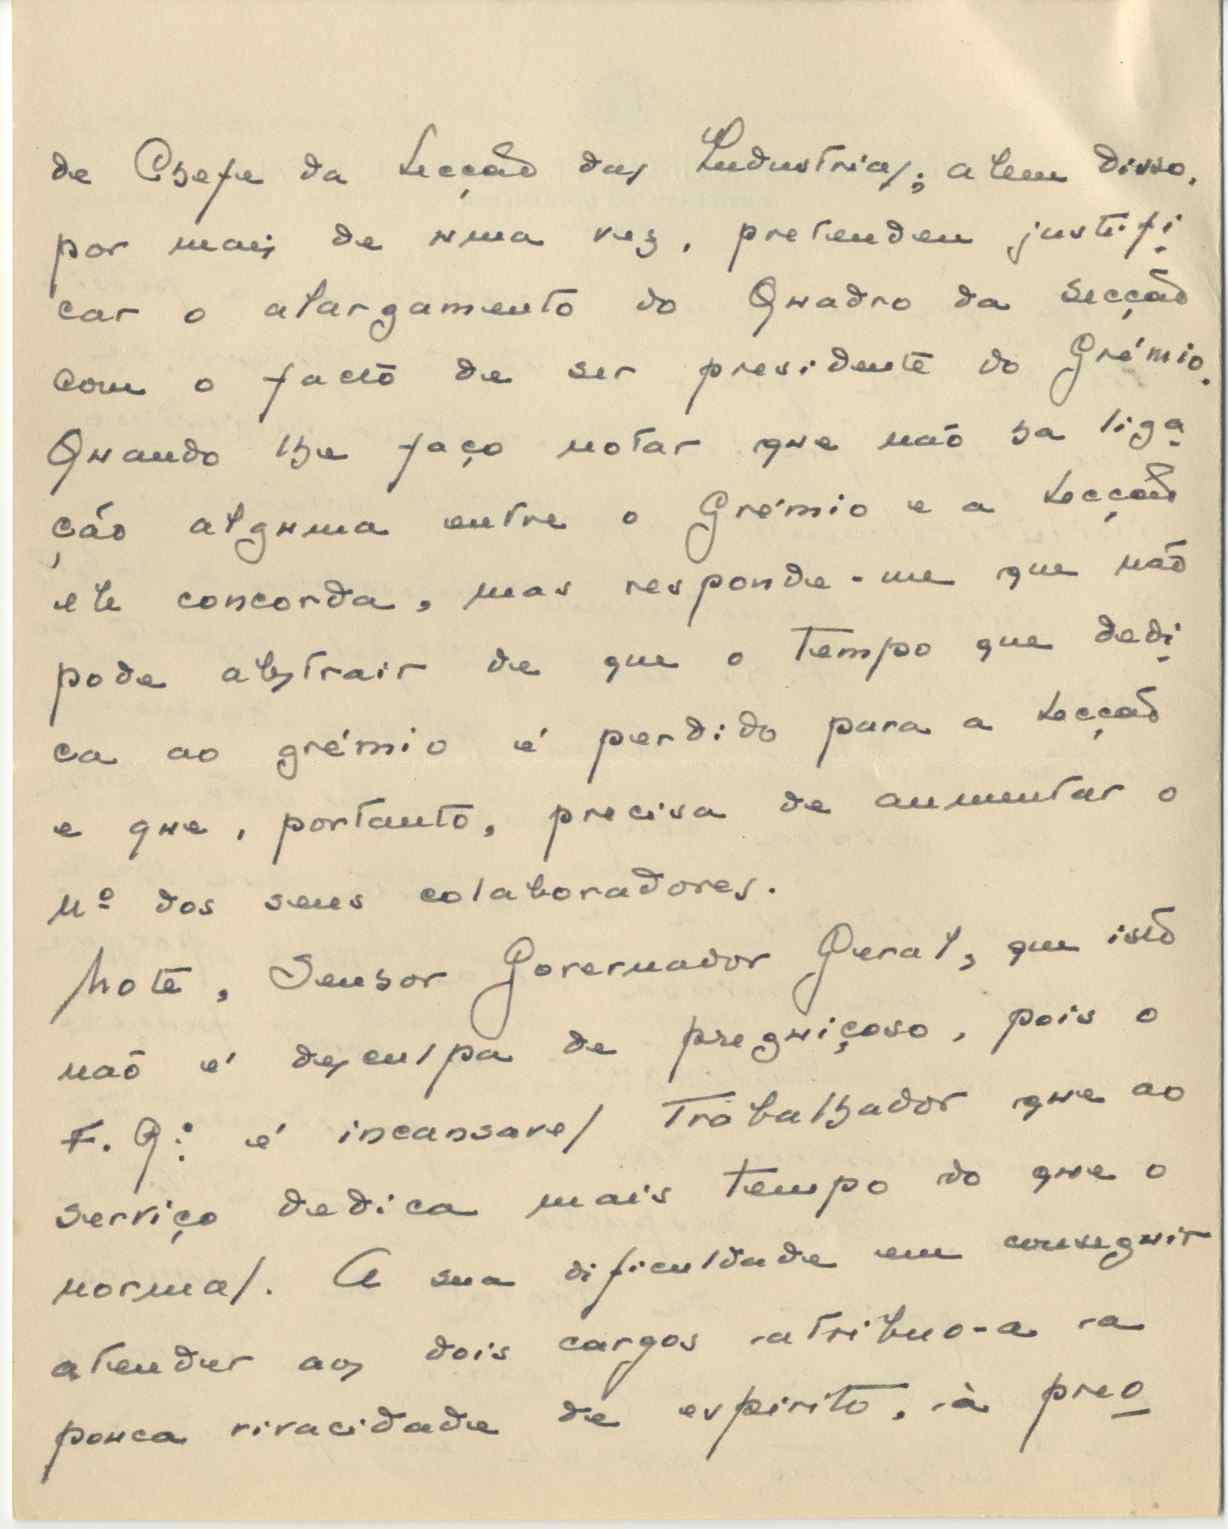 de Chefe da Secção das Industrias; alem disso,
por mais de uma vez, pretendeu justifi
car o alargamento do Quadro da Secção
com o facto de ser presidente do Grémio.
Quando lhe faço notar que não ha liga
ção alguma entre o Grémio e a Secção
ele concorda, mas responde-me que não
pode abstrair de que o tempo que dedi
ca ao grémio é perdido para a Secção
e que, portanto, precisa de aumentar o
nº dos seus colaboradores.
Note, Senhor Governador Geral, que isto
não é desculpa de preguiçoso, pois o
F. Q: é incansavel trabalhador que ao
serviço dedica mais tempo do que o
normal. A sua dificuldade em conseguir
atender aos dois cargos atribuo-a á
pouca vivacidade de espirito, à preo